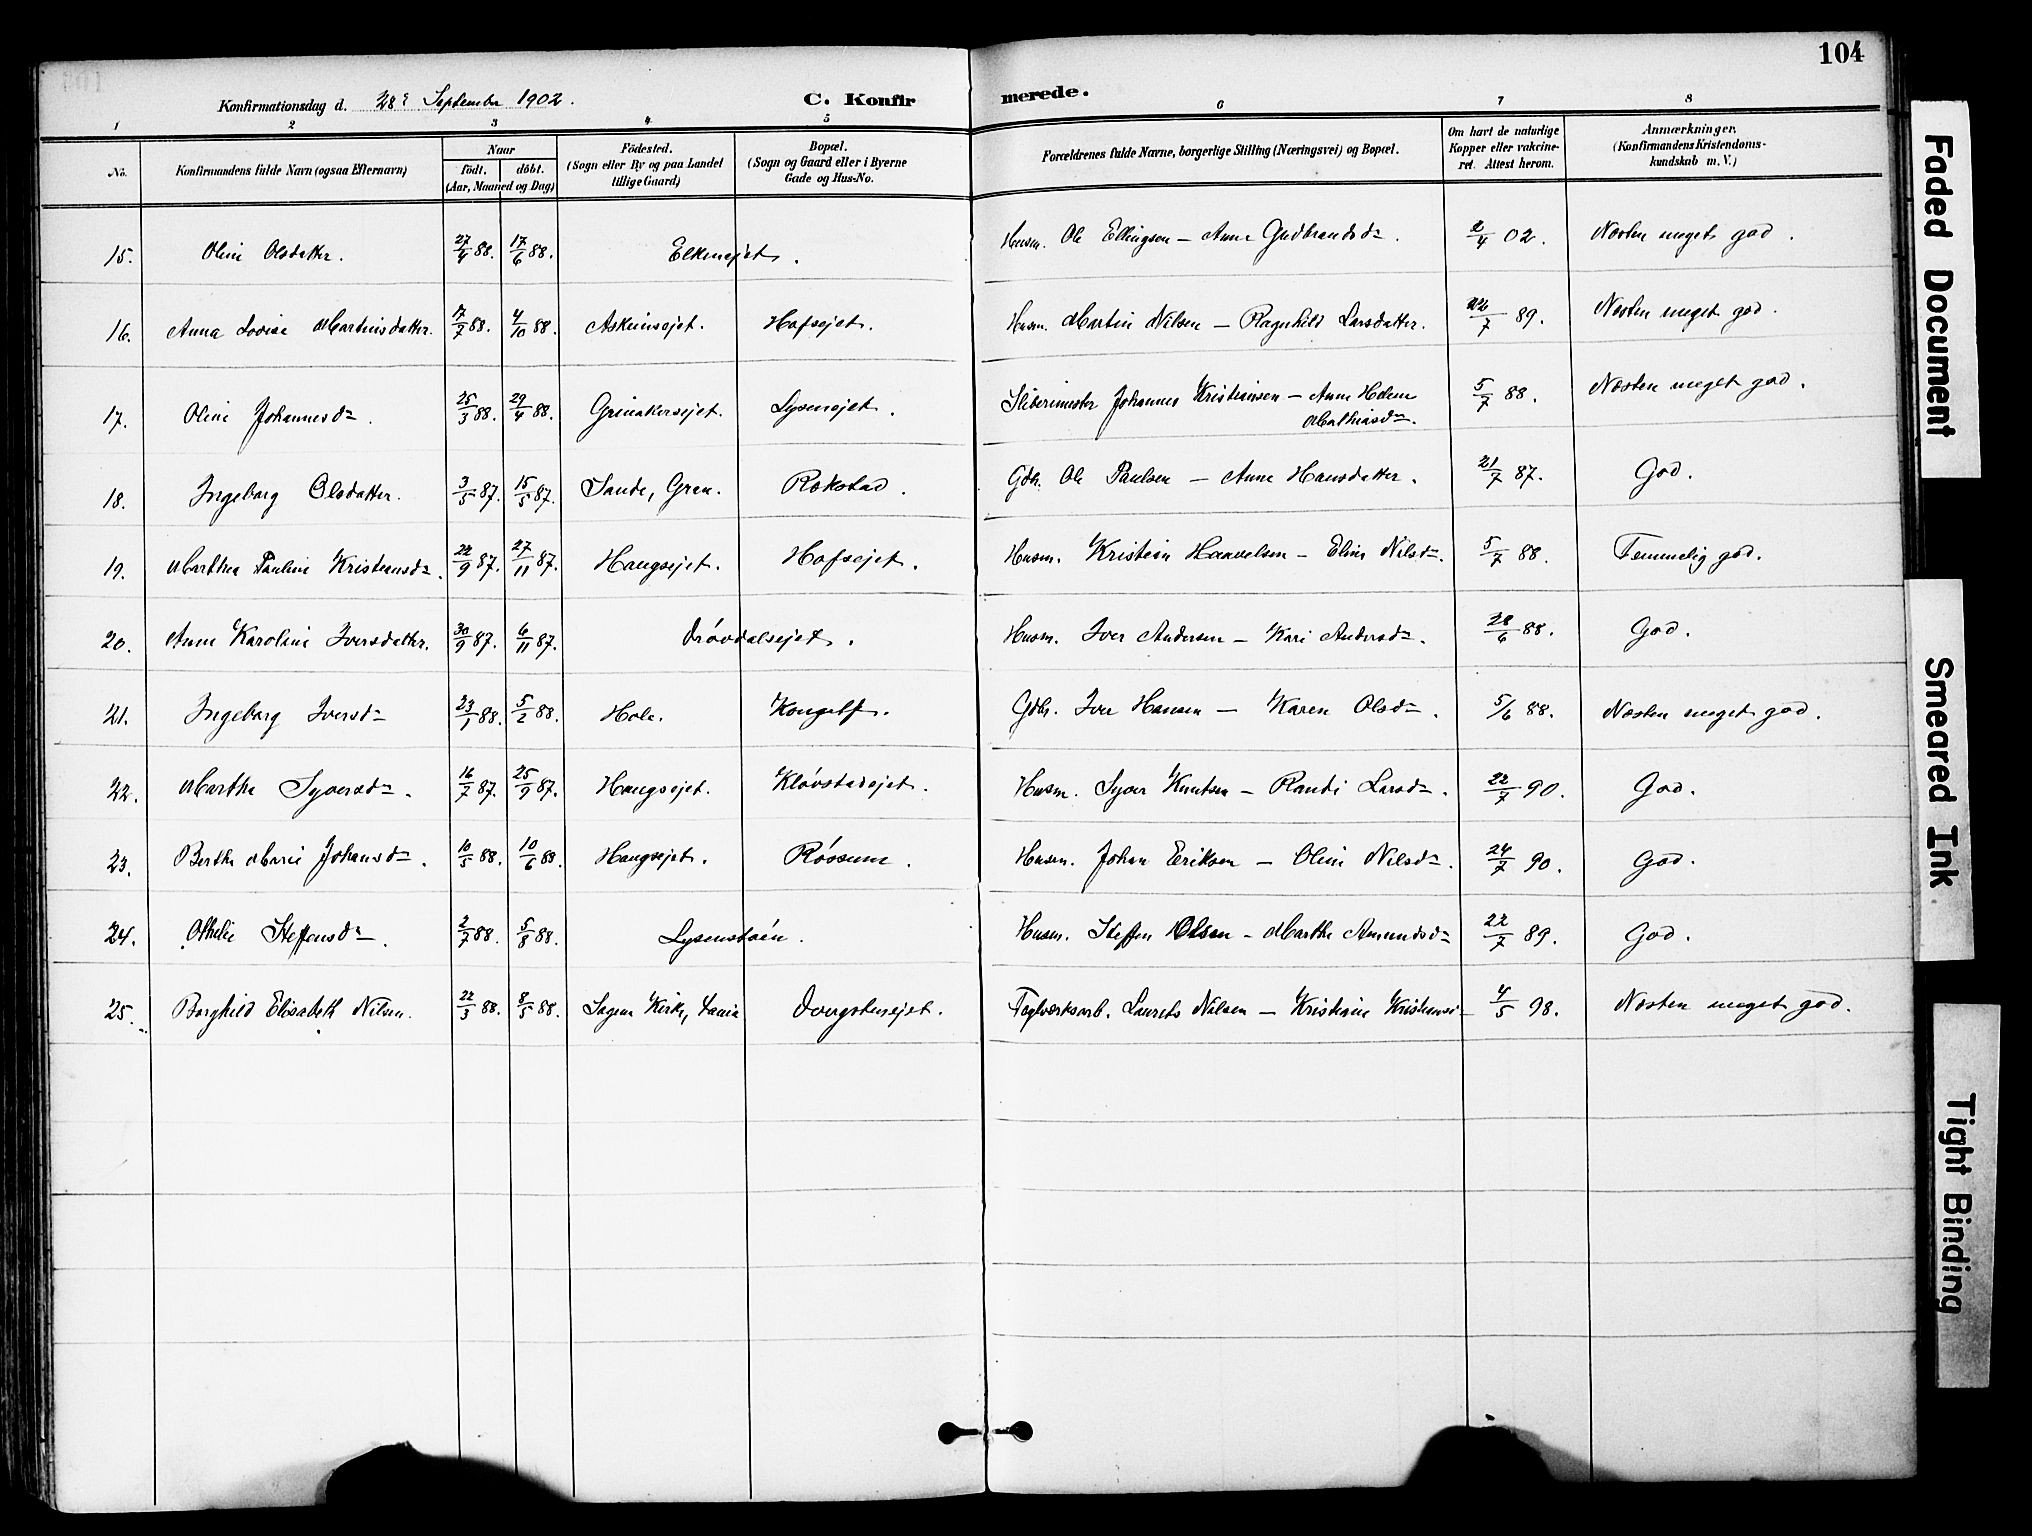 104
Konfirmationsdag d. 28de September 1902.
C. Konfirmerede.
1 2 3 4 5 6 7 8
No. Konfirmandens fulde Navn (ogsaa Efternavn) Naar født. døbt. (Aar, Maaned og Dag) Fødested. (Sogn eller By og paa Landet tillige Gaard) Bopæl. (Sogn og Gaard eller i Byerne Gade og Hus-No. Forældrenes fulde Navne, borgerlige Stilling (Næringsvei) og Bopæl. Om havt de naturlige Kopper eller vakcineret. Attest herom. Anmærkninger. (Konfirmandens Kristendomskundskab m. V.)
15. Oline Olsdatter. 27/4 88. 17/6 88. Elkensejet. Husm. Ole Ellingsen — Anne Gudbrandsdr. 2/4 02. Næsten meget god.
16. Anna Lovise Martinsdatter. 17/7 88. 4/10 88. Askimsejet. Hofsejet. Husm. Martin Nilsen — Ragnhild Larsdatter. 22/7 89. Næsten meget god.
17. Oline Johannesdr. 25/3 88. 29/4 88. Grinakersejet. Lysenejet. Sliberimester Johannes Kristiansen — Anne Helene Mathiasdr. 5/7 88. Næsten meget god.
18. Ingeborg Olsdatter. 3/5 87. 15/5 87. Sande, Gran. Rokstad. Gdb. Ole Paulsen — Anne Hansdatter. 21/7 87. God.
19. Marthea Pauline Kristiansdr. 22/9 87. 27/11 87. Haugsejet. Hofsejet. Husm. Kristian Haavelsen — Eline Nilsdr. 5/7 88. Temmelig god.
20. Anne Karoline Iversdatter. 30/9 87. 6/11 87. Drövdalsejet. Husm. Iver Andersen — Kari Andersdr. 28/6 88. God.
21. Ingeborg Iversdr 23/1 88. 5/2 88. Hole. Kongelf. Gdbr. Iver Hansen — Karen Olsdr. 5/6 88. Næsten meget god.
22. Marthe Syversdr. 16/7 87. 25/9 87. Haugsejet. Klövstadejet. Husm. Syver Knutsen — Randi Larsdr. 22/7 90. God.
23. Berthe Marie Johansdr. 10/5 88. 10/6 88. Haugsejet. Røssum. Husm. Johan Eriksen — Oline Nilsdr. 24/7 90. God.
24. Othelie Steffensdr. 2/7 88. 5/8 88. Lysenstøen. Husm. Steffen Olsen — Marthe Amundsdr 22/7 89. God.
25. Borghild Elisabeth Nilsen. 22/3 88. 8/5 88. Sagene Kirke, Dvergstenejet. Teglværksarb. Laurits Nilsen — Kristiane 4/5 98. Næsten meget god.
Faded Document
Smeared Ink
Tight Binding